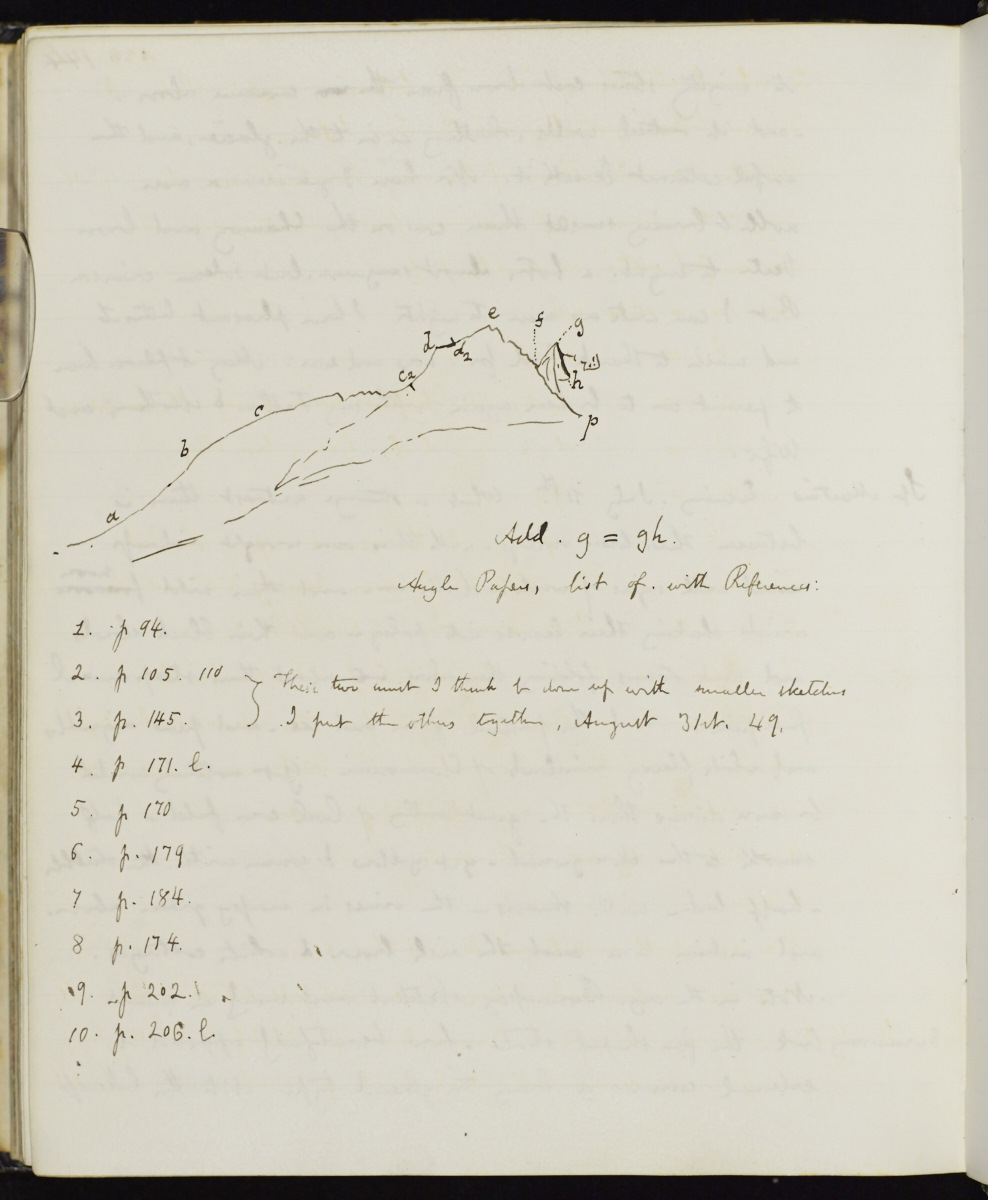 e
f
g
d
d2
c2
h
c
p
b
a
Add. g = gh.
Angle Papers, list of. with References:
1. p 94.
2. p 105. 110
These two must I think be done up with smaller sketches
3. p. 145.
I put the others together, August 31st. 49.
4. p 171. l.
5. p 170
6. p. 179
7 p. 184.
8 p. 174.
9. p 202.
10. p. 206. l.